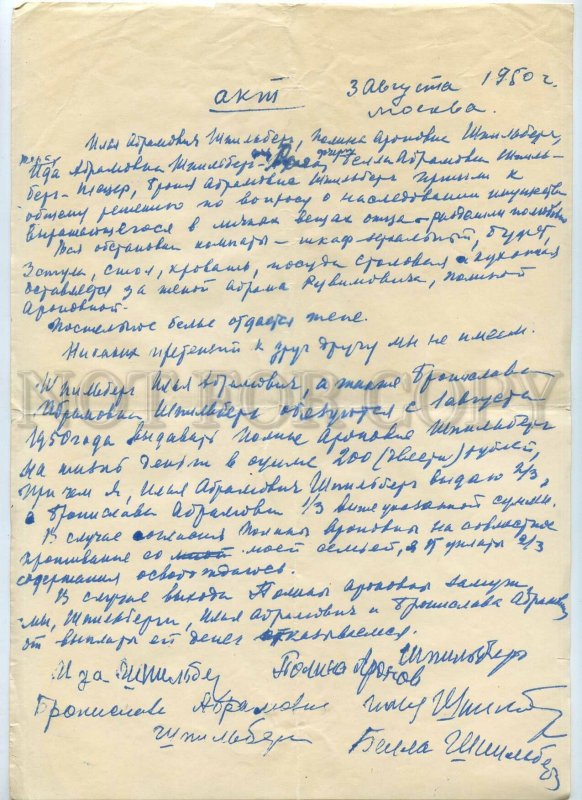 акт
3 Августа 1950 г.
Москва.
Илья Абрамович Шпильберг, Полина Ароновна Шпильберг,
Ида Абрамовна Шпильберг- Белла Абрамовна Шпиль-
берг- Броня Абрамовна Шпильберг пришли к
общему решению по вопросу о наследовании имущества
выражающегося в личных вещах отца - раздали полюбовно
Вся обстановка комнаты - шкаф зеркальный, буфет,
3 стула, стол, кровать, посуда столовая и кухонная
оставляется за женой Абрама Рувимовича, Полиной
Ароновной.
Постельное белье отдается жене.
Никаких претензий к друг другу мы не имеем.
Шпильберг Илья Абрамович, а также Бронислава
Абрамовна Шпильберг обязуются с 1 августа
1950 года выдавать Полине Ароновне Шпильберг
на жизнь деньги в сумме 200 (двести) рублей,
при чем я, Илья Абрамович Шпильберг выдаю 2/3,
а Бронислава Абрамовна 1/3 вышеуказанной суммы.
В случае согласия Полины Ароновны на совместное
проживание со моей семьей, я от уплаты 2/3
содержания освобождаюсь.
В случае выхода Полины Ароновны замуж,
мы, Шпильберги, Илья Абрамович и Бронислава Абрамовна
от выплаты ей денег отказываемся.
Ида Шпильбер Полина Аронов Шпильберг
Бронислава Абрамовна Илья Шпильб
Шпильберг Белла Шпильберг
NOT FOR COPY